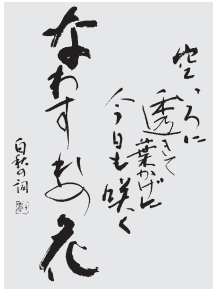 空いろに
透きて
葉かげに
今日も咲く
なわすれの花
白秋の詞